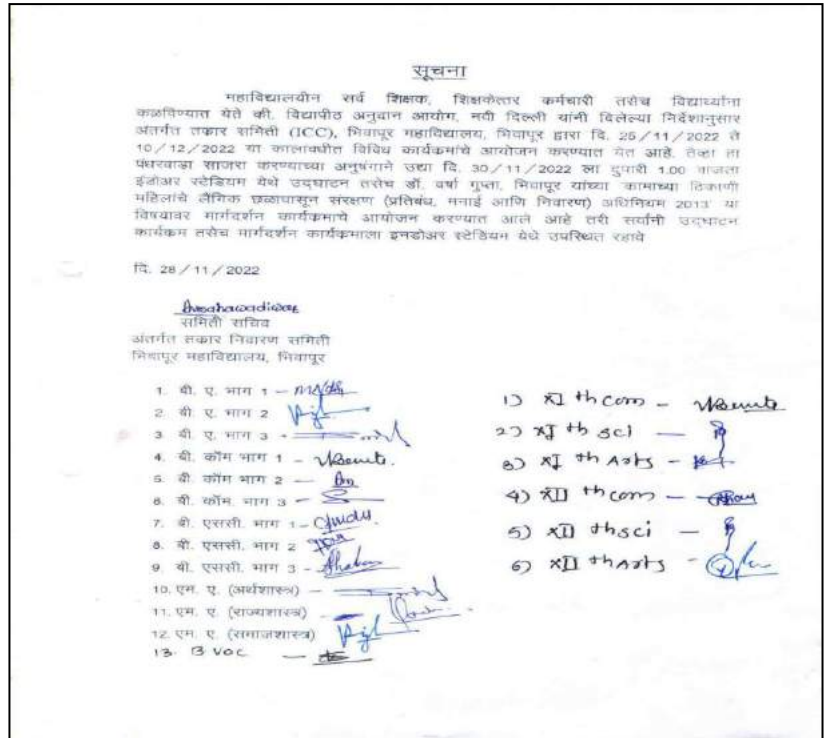 सूचना
महाविद्यालयीन सर्व शिक्षक, शिक्षकेत्तर कर्मचारी तसेच विद्यार्थ्यांना
कळविण्यात येते की, विद्यापीठ अनुदान आयोग, नवी दिल्ली यांनी दिलेल्या निर्देशानुसार
अंतर्गत तक्रार समिती (ICC), भिवापूर महाविद्यालय, भिवापूर द्वारा दि. 25/11/2022 ते
10/12/2022 या कालावधीत विविध कार्यक्रमांचे आयोजन करण्यात येत आहे. तेव्हा हा
पंधरवाडा साजरा करण्याच्या अनुषंगाने उद्या दि. 30/11/2022 ला दुपारी 1.00 वाजता
इंडोअर स्टेडियम येथे उद्घाटन तसेच डॉ. वर्षा गुप्ता, भिवापूर यांच्या कामाच्या ठिकाणी
महिलांचे लैंगिक छळापासून संरक्षण (प्रतिबंध, मनाई आणि निवारण) अधिनियम 2013' या
विषयावर मार्गदर्शन कार्यक्रमाचे आयोजन करण्यात आले आहे तरी सर्वांनी उद्घाटन
कार्यक्रम तसेच मार्गदर्शन कार्यक्रमाला इनडोअर स्टेडियम येथे उपस्थित रहावे
दि. 28/11/2022
समिती सचिव
अंतर्गत तक्रार निवारण समिती
भिवापूर महाविद्यालय, भिवापूर
1. बी. ए. भाग 1 –
2. बी. ए. भाग 2
3. बी. ए. भाग 3 -
4. बी. कॉम भाग 1 -
5. बी. कॉम भाग 2 —
6. बी. कॉम. भाग 3 -
7. बी. एससी. भाग 1 -
8. बी. एससी. भाग 2
9. बी. एससी. भाग 3 -
10. एम. ए. (अर्थशास्त्र) —
11. एम. ए. (राज्यशास्त्र) -
12. एम. ए. (समाजशास्त्र)
13. B VOC —
1) XI th com -
2) XI th sci —
3) XI th Arts -
4) XII th com —
5) XII th sci —
6) XII th Arts -